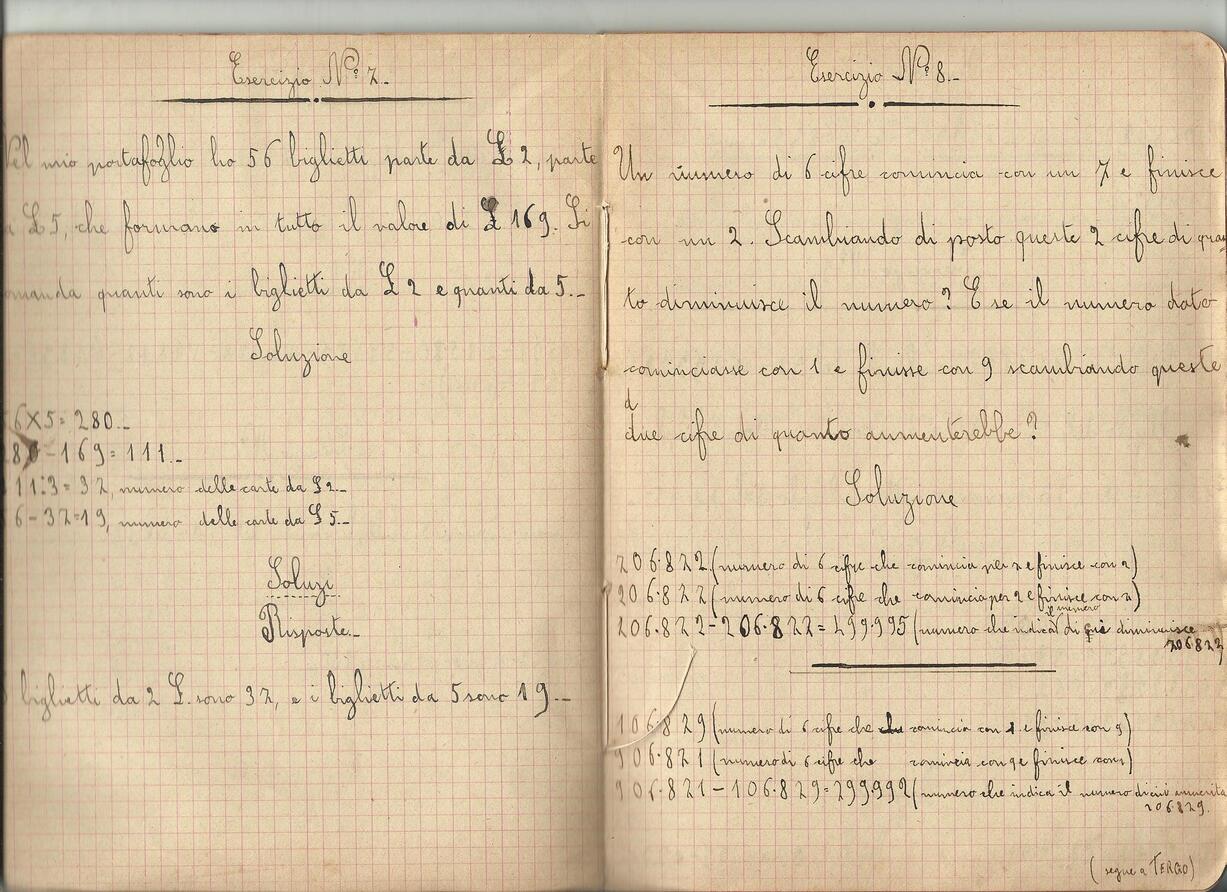 Esercizio N.º 7.-
mio portafoglio ho 56 biglietti parte da £ 2, parte
£ 5, che formano in tutto il valore di £ 169. Si
quanti sono i biglietti da £ 2 e quanti da 5.-
Soluzione
6X5= 280.-
-169= 111.-
11:3= 37, numero delle carte da £ 2.-
6-37=19, numero delle carte da £ 5.-
Soluzi
Risposte.-
biglietti da 2 £. sono 37, e i biglietti da 5 sono 19.-
Esercizio N.º 8.-
Un numero di 6 cifre comincia con un 7 e finisce
con un 2. Scambiando di posto queste 2 cifre di quan
to diminuisce il numero? E se il numero dato
cominciasse con 1 e finisse con 9 scambiando queste
d
due cifre di quanto aumenterebbe?
Soluzione
706.822 (numero di 6 cifre che comincia per 7 e finisce con 2)
206.827 (numero di 6 cifre che comincia per 2 e finisce con 7)
il numero
706.822-206.827=499.995 (numero che indica di diminuisce
706.822)
106.829 (numero di 6 cifre che comincia con 1 e finisce con 9)
906.821 (numero di 6 cifre che comincia con 9 e finisce con 1)
906.821-106.829=799.992 (numero che indica il numero di cui aumenta
106.829.
(segue a TERGO)